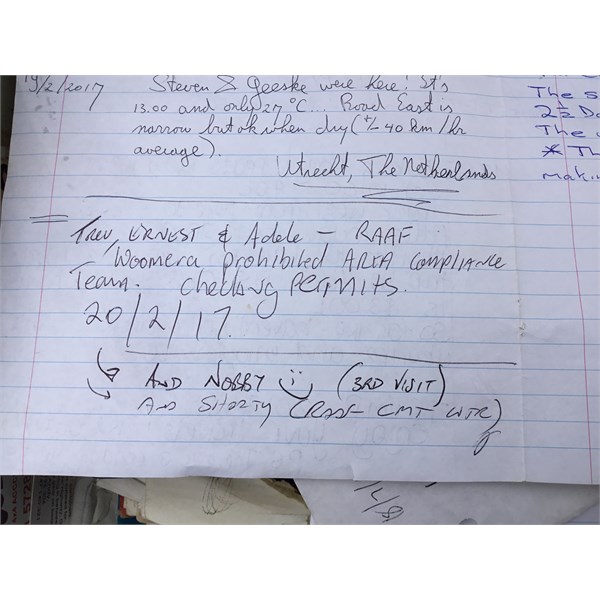 19/2/2017 Steven & Geeske were here! It's
13.00 and only 27°C... Road East is
narrow but ok when dry (+/- 40 km/hr
average).
Utrecht, The Netherlands
Trev, ERNEST & Adele - RAAF
Woomera prohibited AREA COMPLIANCE
Team. checking PERMITS.
20/2/17.
AND NOBBY (3RD VISIT)
AND SHORTY (RAAF CMT WTR)
The s
2½ Da
The
* Th
makin